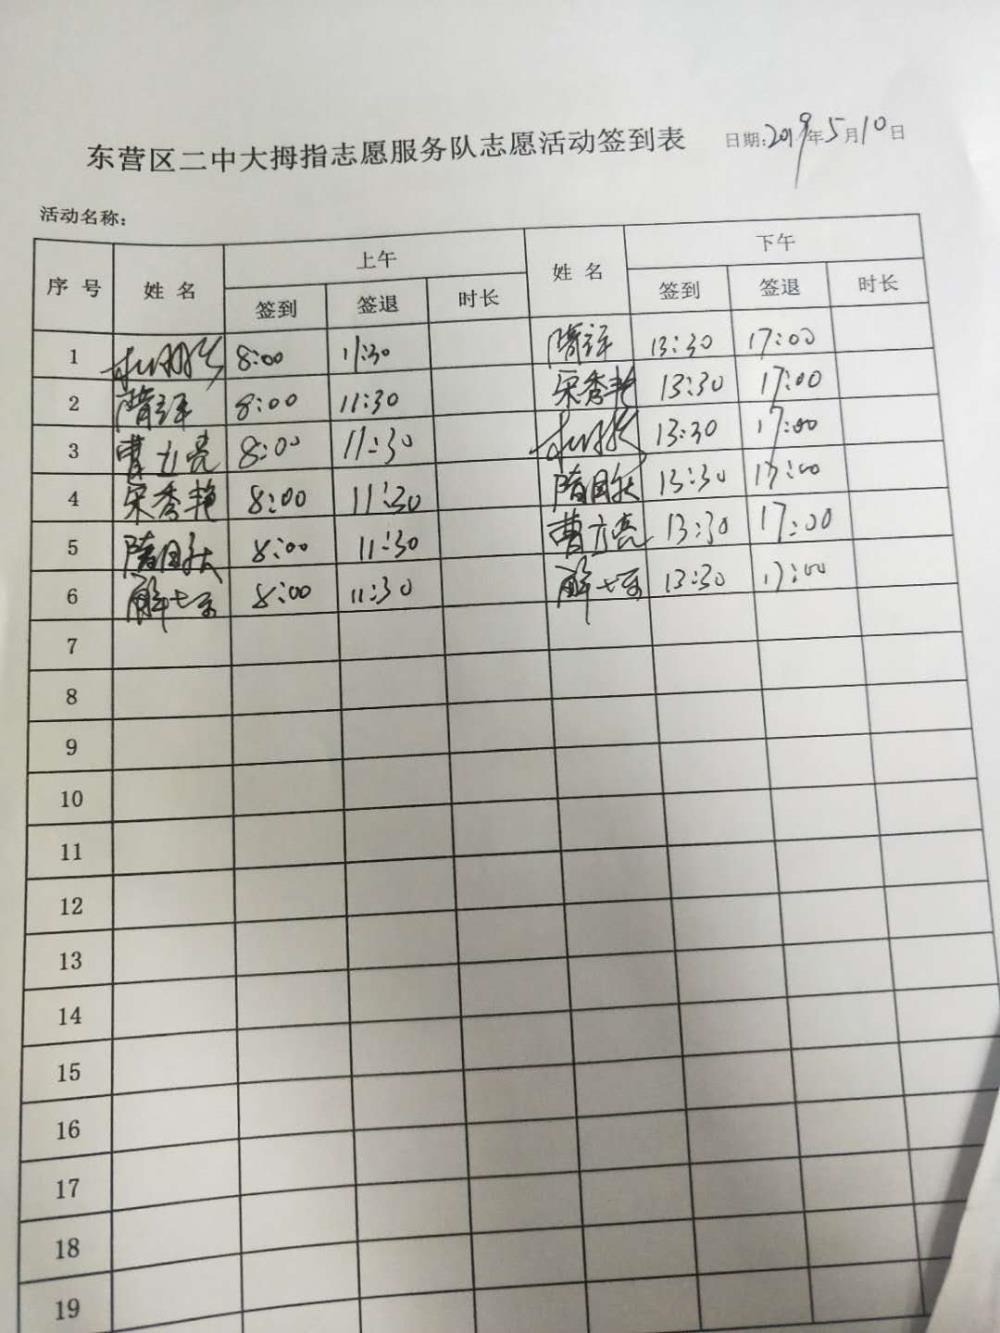 东营区二中大拇指志愿服务队志愿活动签到表 日期:2019年5月10日
活动名称:
序号 姓名 上午 姓名 下午
签到 签退 时长 签到 签退 时长
1 8:00 11:30 隋译 13:30 17:00
2 隋译 8:00 11:30 宋秀艳 13:30 17:00
3 曹立亮 8:00 11:30 13:30 17:00
4 宋秀艳 8:00 11:30 隋国 13:30 17:00
5 隋国 8:00 11:30 曹立亮 13:30 17:00
6 解 8:00 11:30 解 13:30 17:00
7
8
9
10
11
12
13
14
15
16
17
18
19